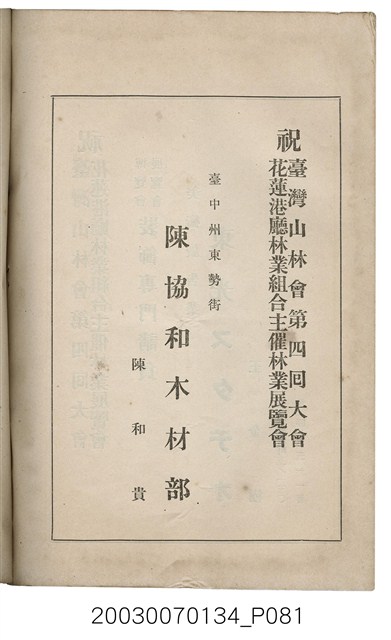 祝
臺灣山林會第四回大會
花蓮港廳林業組合主催林業展覽會
臺中州東勢街
陳協和木材部
陳和貴
20030070134_P081